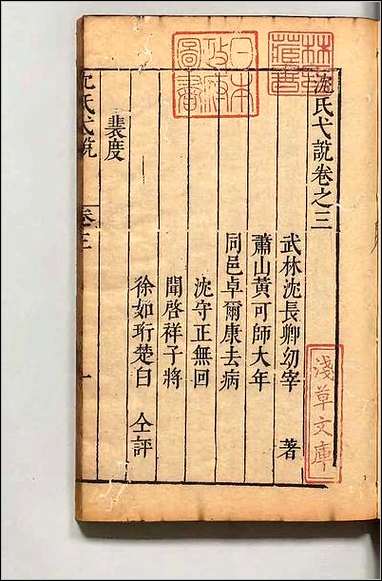 沈氏弋說卷之三
武林沈長卿幼宰 著
蕭山黃可師大年
同邑卓爾康去病
沈守正無回
聞啓祥子將
徐如珩楚白 仝評
裴度
沈氏弋說
卷三
一
林氏藏書
日本政府圖書
淺草文庫